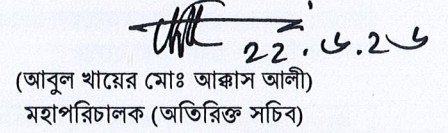 ২২.৬.২৬
(আবুল খায়ের মোঃ আক্কাস আলী)
মহাপরিচালক (অতিরিক্ত সচিব)